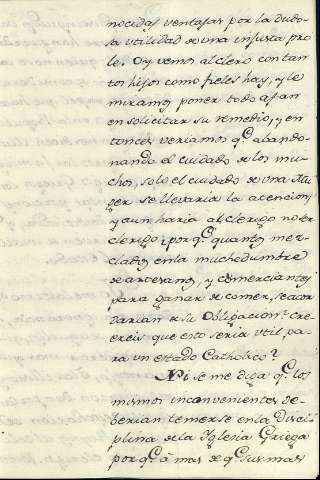 nocidas ventajas por la dudo-
sa utilidad de una injusta pro
le. Oy vemos al clero con tan
tos hijos como fieles hay, y le
miramos poner todo afan
en solicitar su remedio, y en
tonces veriamos q.e abando-
nando el cuidado de los mu-
chos, solo el cuidado de una Mu
ger se llevaria la atencion,
y aun haria al clerigo no ser
clerigo, porq.e quantos mez-
clados en la muchedumbre
de artesanos, y comerciantes
para ganar de comer, se acor
darian de su obligacion? cre
ereis que esto seria util pa-
ra un estado Catholico?
Ni se me diga q.e los
mismos inconvenientes de-
berian temerse en la Disci-
plina de la Iglesia Griega
porq.e á mas de q.e sus mas